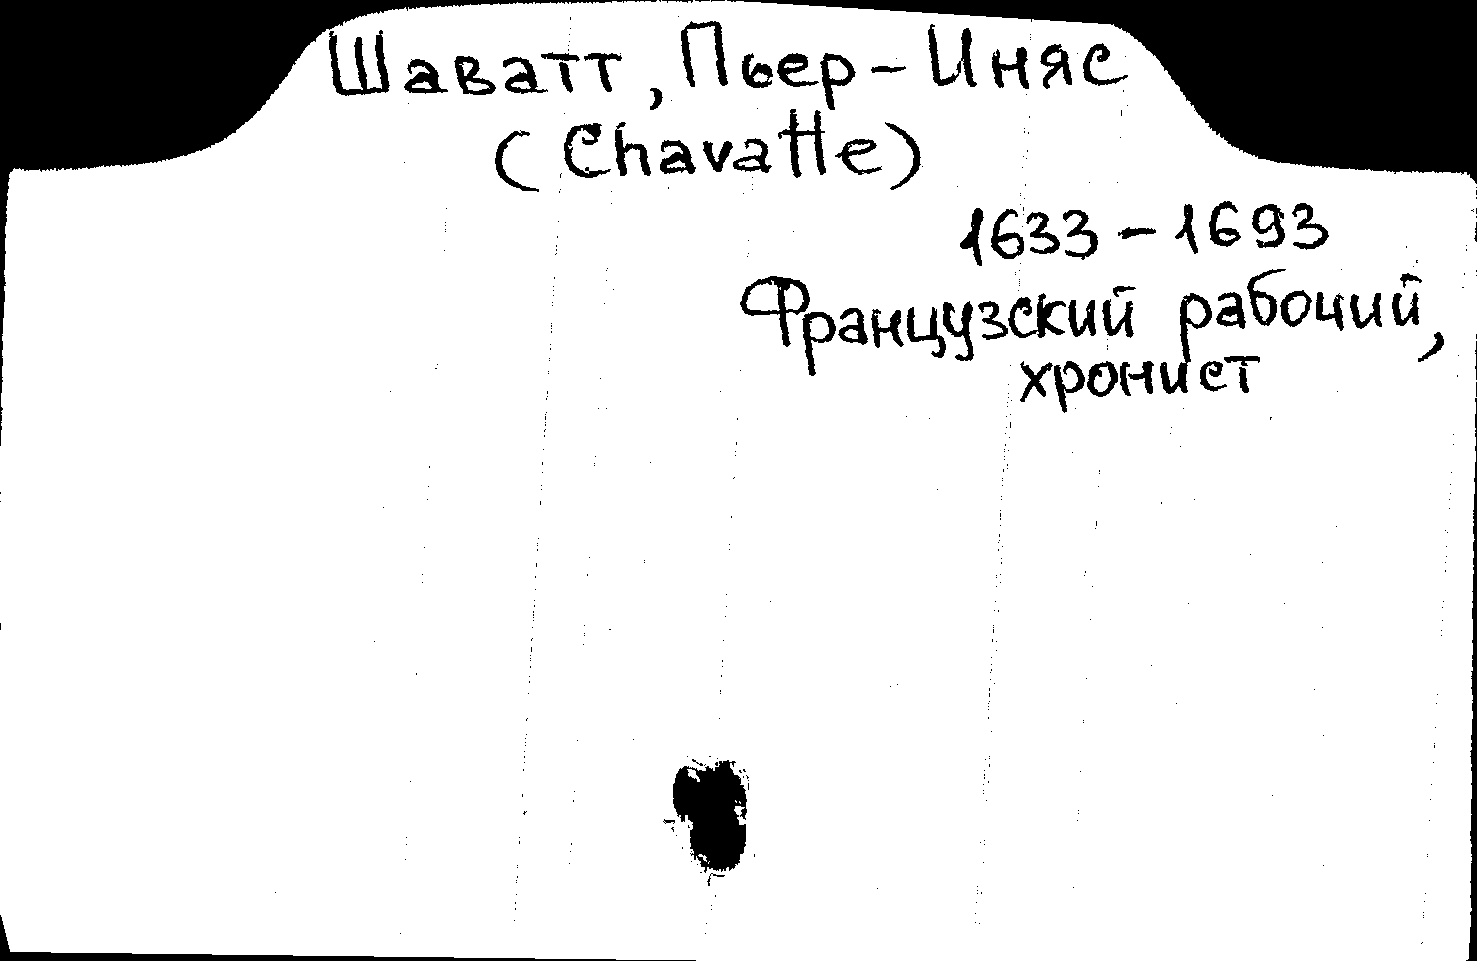 Шаватт, Пьер-Иняс
(Chavatte)
1633-1693
Французский рабочий,
хронист